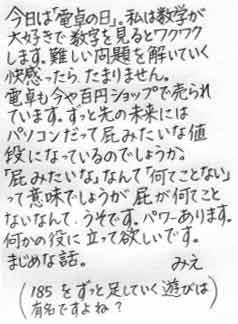 今日は「電卓の日」。私は数学が
大好きで数字を見るとワクワク
します。難しい問題を解いていく
快感ったら、たまりません。
電卓も今や百円ショップで売られ
ています。ずっと先の未来には
パソコンだって屁みたいな値
段になっているのでしょうか。
「屁みたいな」なんて「何てことない」
って意味でしょうが屁が何てこと
ないなんて、うそです。パワーあります。
何かの役に立って欲しいです。
まじめな話。 みえ
(185をずっと足していく遊びは
有名ですよね?)